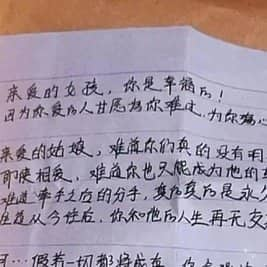 亲爱的女孩，你是幸福的！
因为你爱的人甘愿为你难过，为你痛心
亲爱的姑娘，难道你们真的没有明
即使相爱，难道你也只能成为他的
难道牵手之后的分手，真的真的是永久
注定从今往后，你和他的人生再无交
可…假若一切都将成灰，你